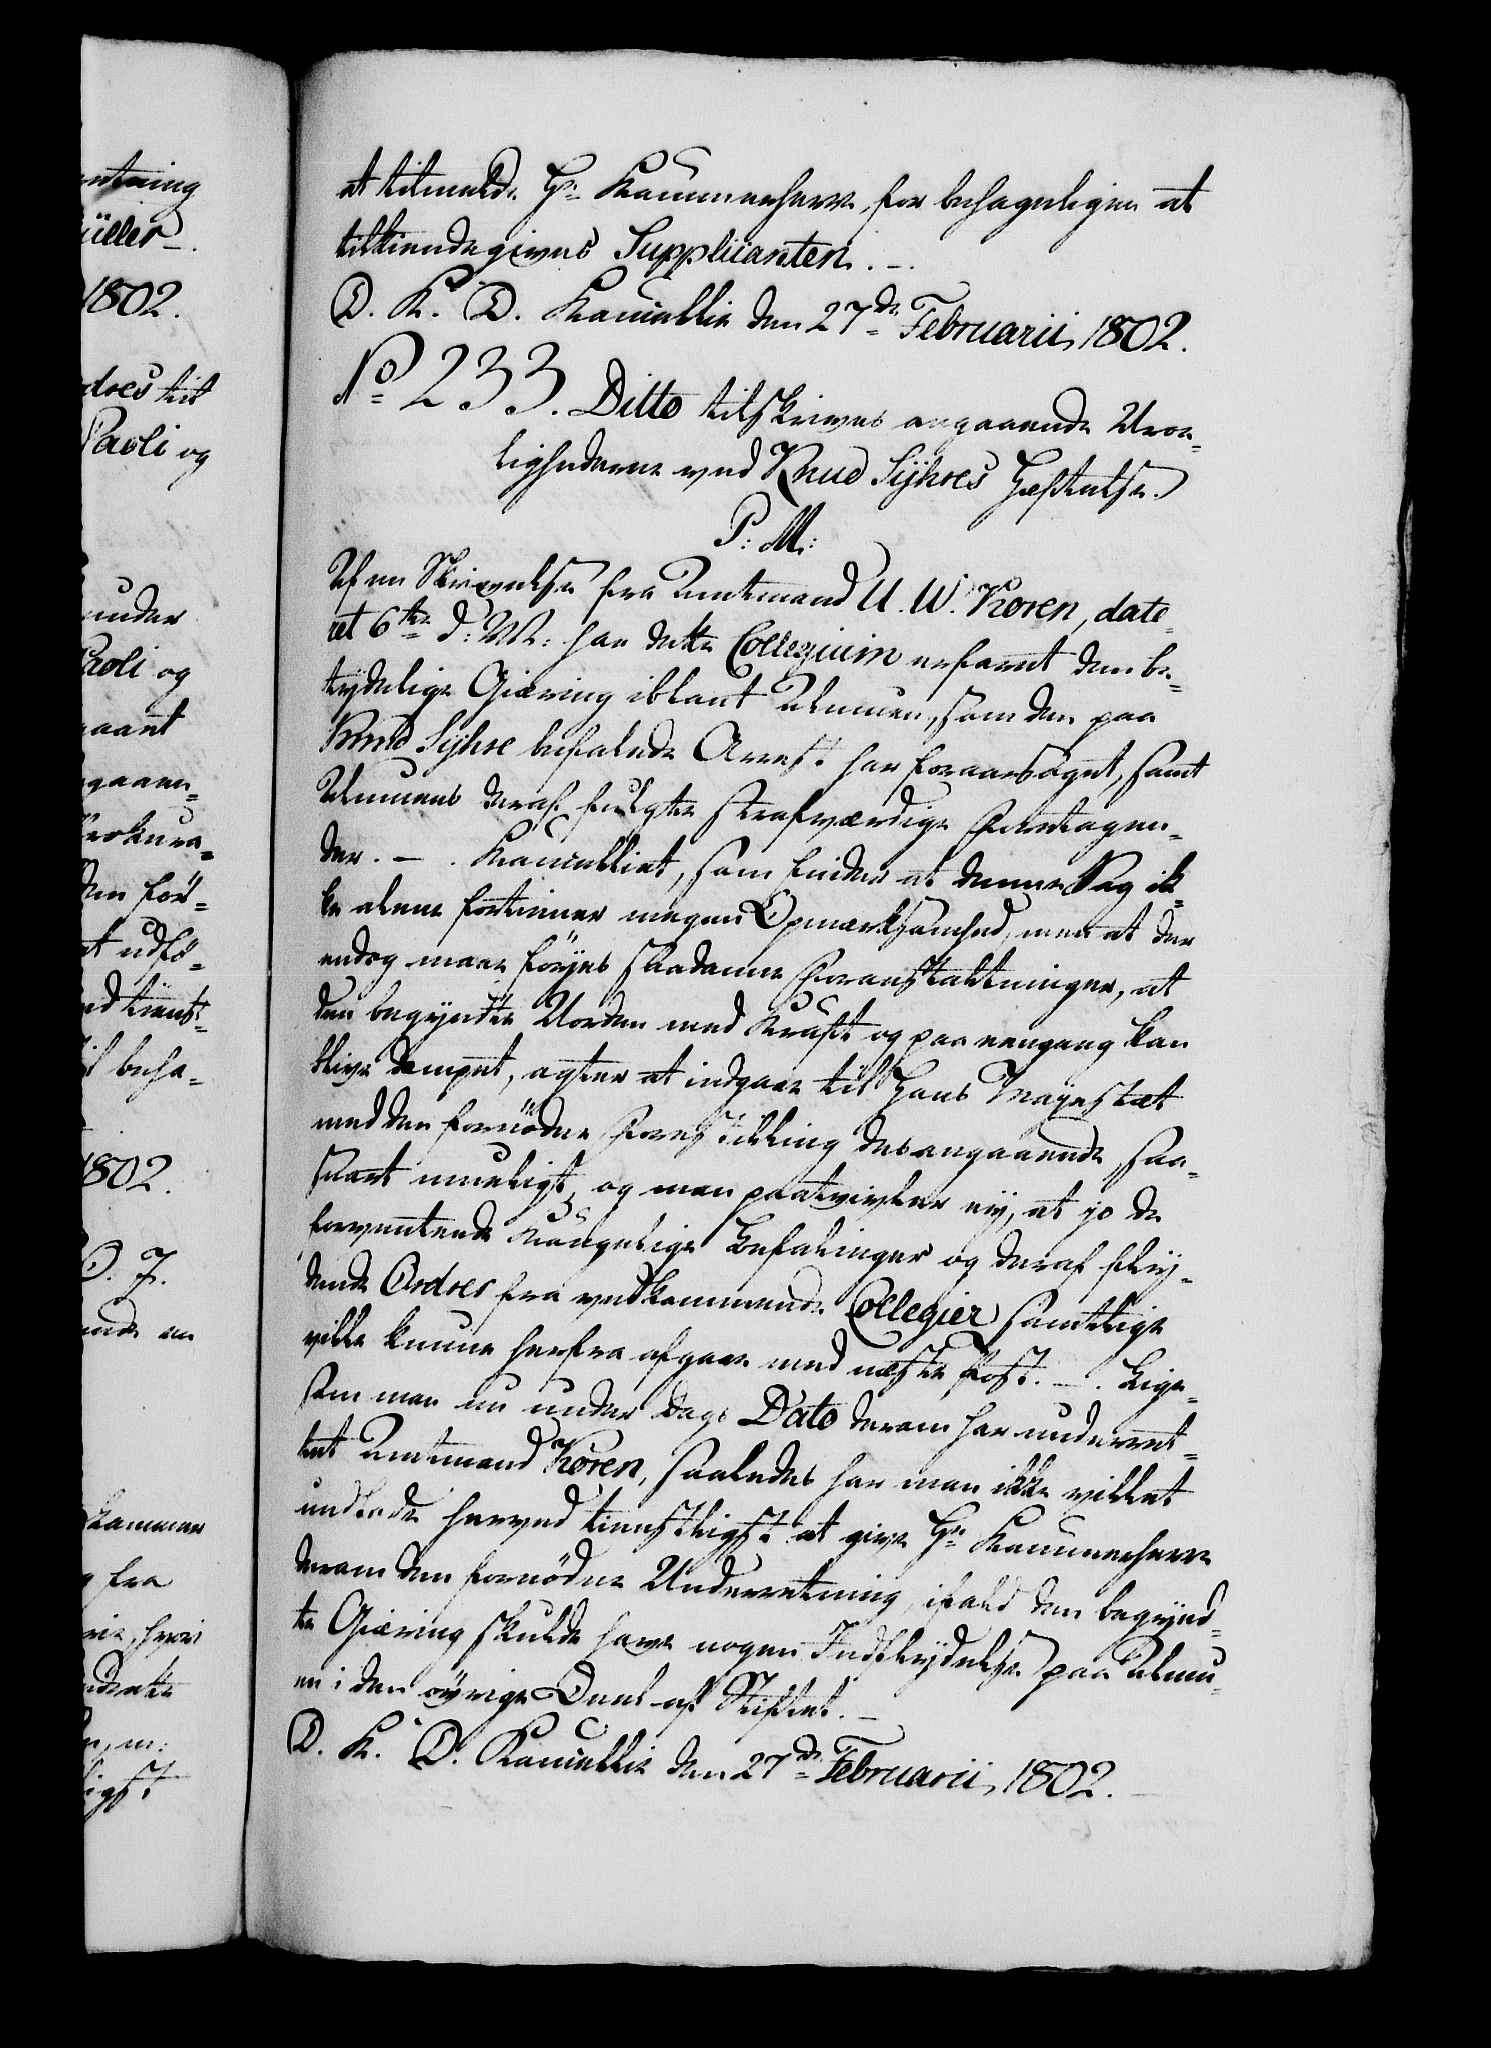 ntning
üller
1802.
dres til
Paoli og
under
Paoli og
gaaet
gaaen-
Prokura-
den for-
at udfö-
nd tienst-
beha-
1802.
D. J.
ende en
Kammer
fra
hvor
igst
at tilmelde Hr. Kammerherre, for behageligen at
tilkiendegives Supplicanten. -.
D. K. D. Kancellie den 27de Februarii 1802.
No 233. Ditto tilskrives angaaende Uroe-
lighederne ved Knud Sÿhres Hæftelse.
P: M:
Af en Skrivelse fra Amtmand U. W. Koren, date-
ret 6te d: M: har dette Collegium erfaret den be-
tydelige Giæring iblant Almuen, som den paa
Knud Sÿhre befalede Arrest har foraarsaget, samt
Almuens deraf fulgte strafværdige Foretagen-
der. -. Kancelliet, som finder at denne Sag ik-
ke alene fortiener megen Opmærksomhed, men at der
endog maae föyes saadanne Foranstaltninger, at
den begyndte Uorden med Kraft og paa eengang kan
blive dempet, agter at indgaae til Hans Majestæt
med den fornödne Forestilling desangaaende, saa-
snart mueligt, og man paatvivler ej, at jo de
forventende Kongelige Befalinger og deraf flÿ-
dende Ordres fra vedkommende Collegier samtlige
ville kunne herfra afgaae med næste Post. -. Lige-
som man nu under Dags Dato derom har underret-
tet Amtmand Koren, saaledes har man ikke villet
undlade herved tienstligst at give Hr. Kammerherre
derom den fornödne Underretning, ifald den begynd-
te Giæring skulde have nogen Indflydelse paa Almu-
en i den øvrige Deel af Stiftet. -
D. K. D. Kancellie den 27de Februarii 1802. -